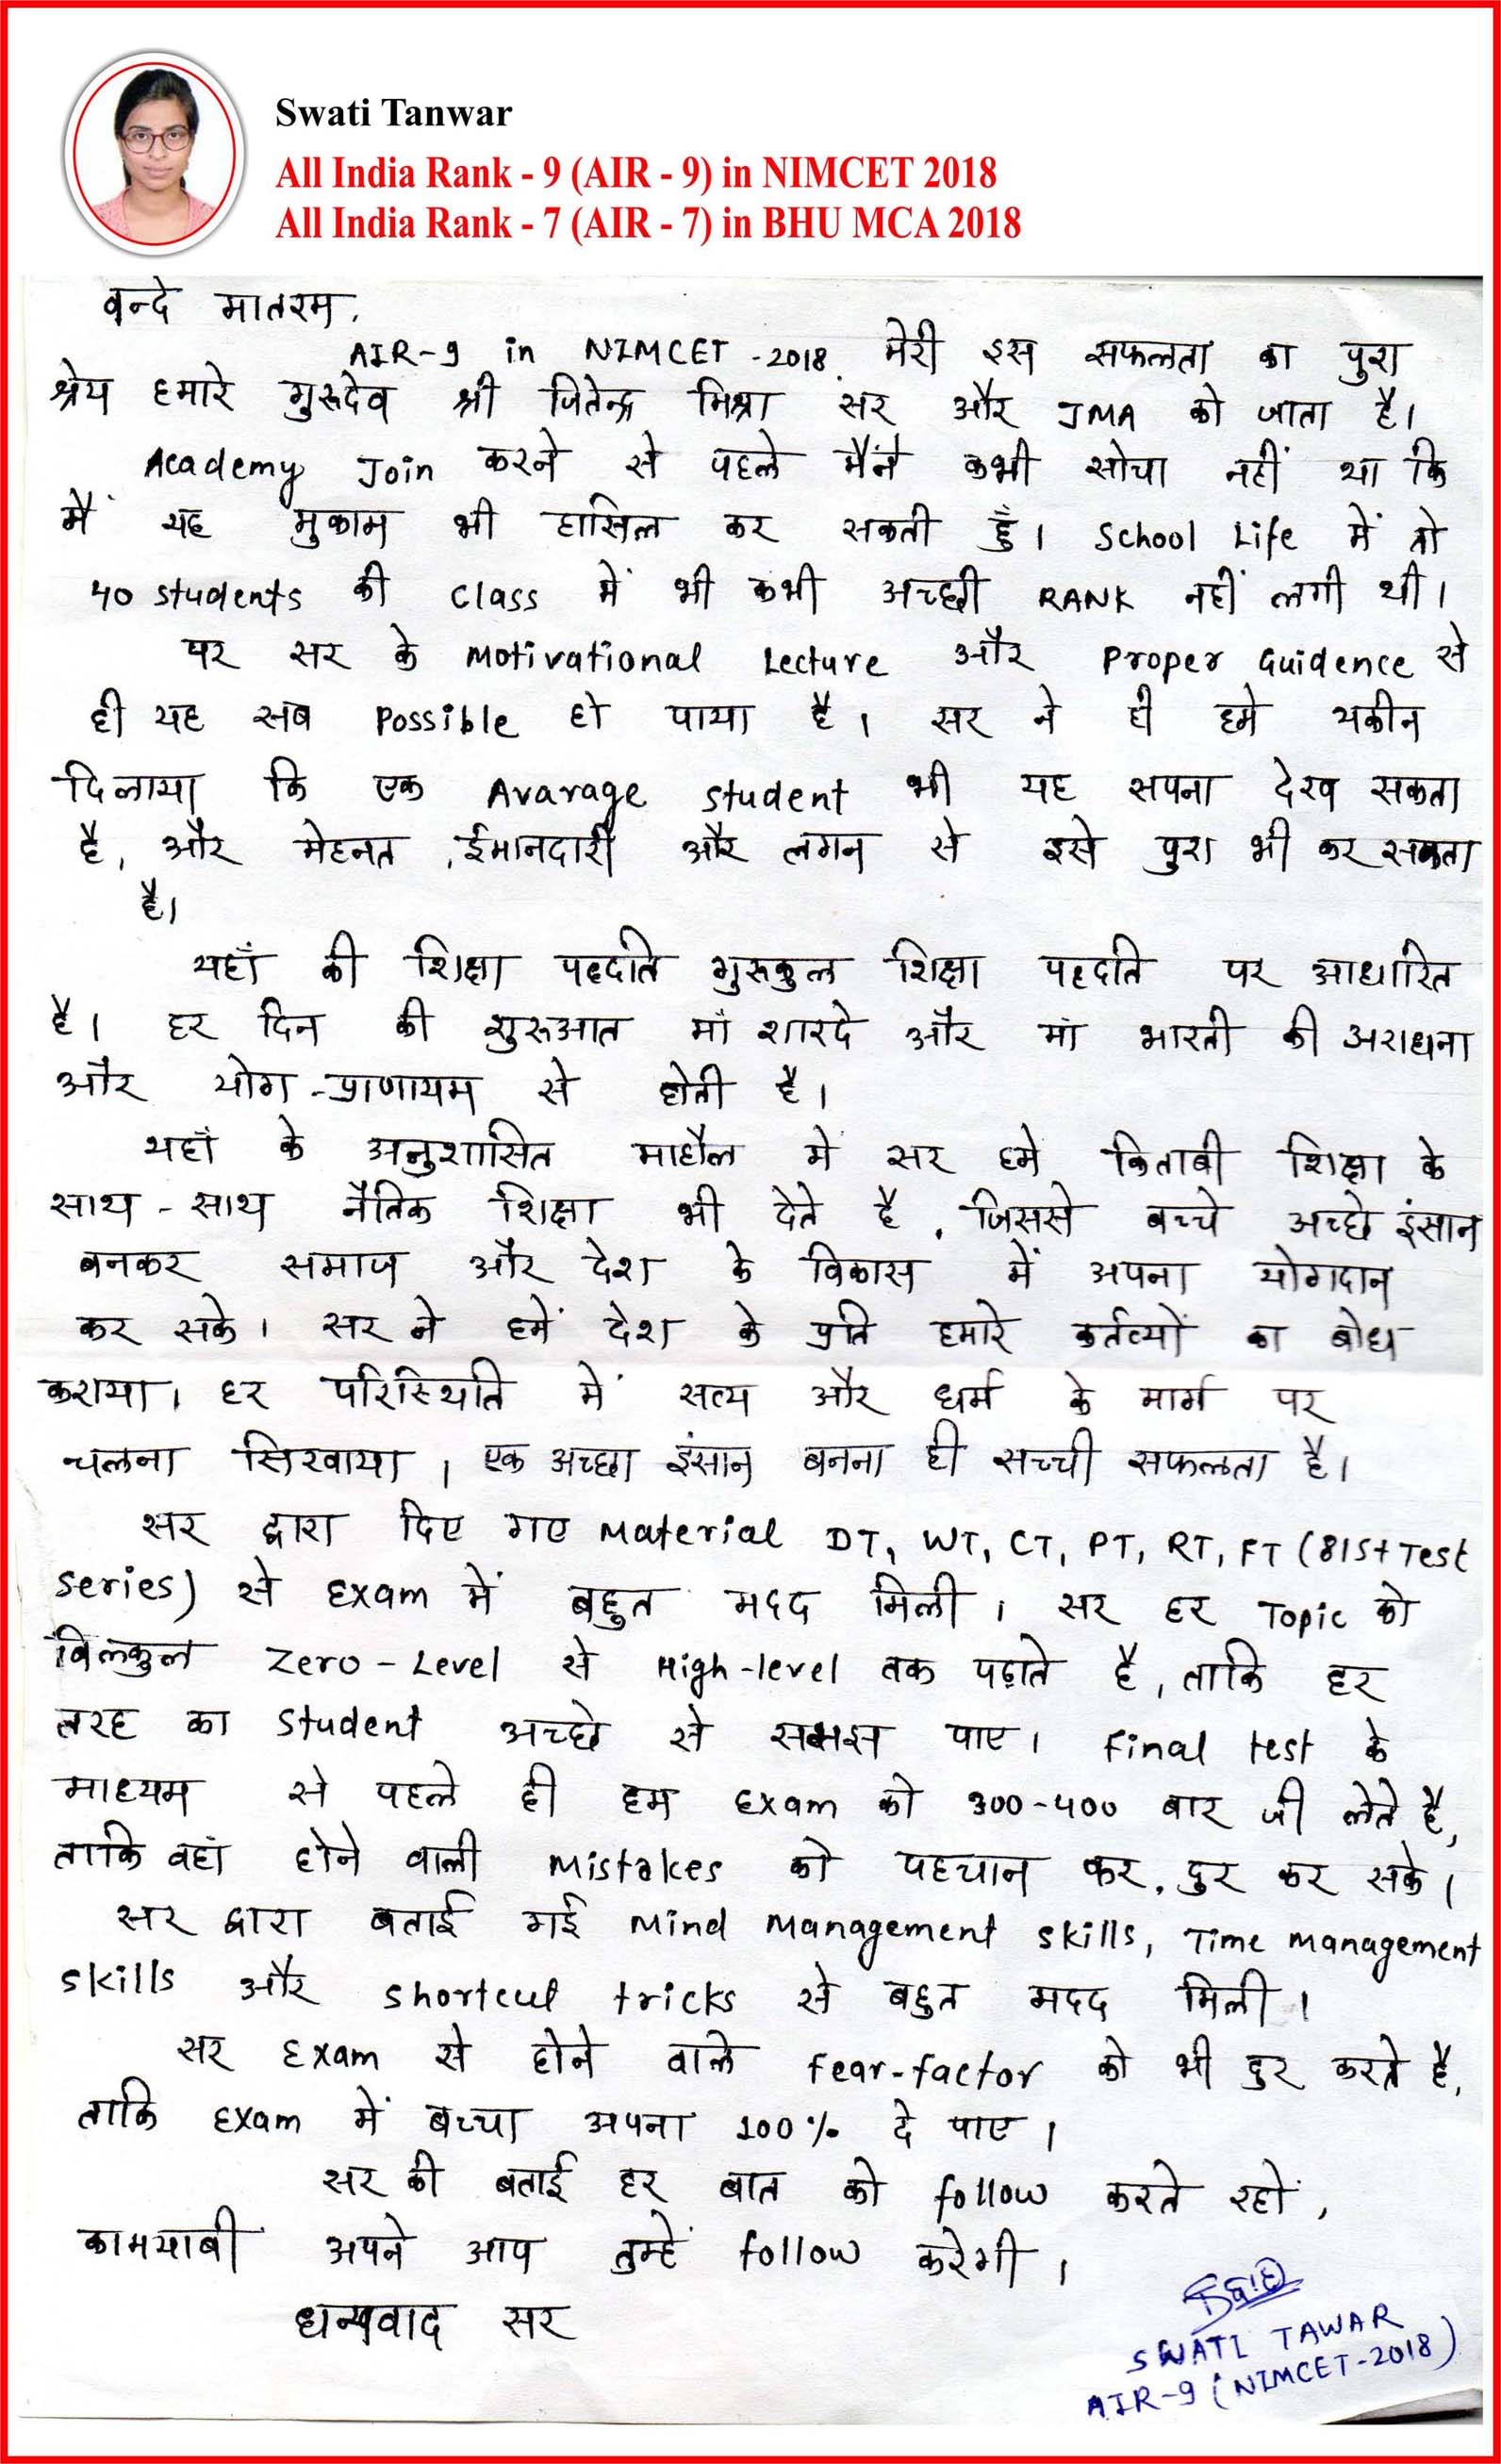 Swati Tanwar
All India Rank - 9 (AIR - 9) in NIMCET 2018
All India Rank - 7 (AIR - 7) in BHU MCA 2018
वन्दे मातरम,
AIR-9 in NIMCET -2018. मेरी इस सफलता का पुरा
श्रेय हमारे गुरुदेव श्री जितेन्द्र मिश्रा सर और JMA को जाता है।
Academy Join करने से पहले मैंने कभी सोचा नहीं था कि
मैं यह मुकाम भी हासिल कर सकती हुँ। School Life में तो
40 students की class में भी कभी अच्छी RANK नहीं लगी थी।
पर सर के Motivational Lecture और Proper Guidence से
ही यह सब Possible हो पाया है। सर ने ही हमे यकीन
दिलाया कि एक Avarage student भी यह सपना देख सकता
है, और मेहनत, ईमानदारी और लगन से इसे पुरा भी कर सकता
है।
यहाँ की शिक्षा पद्दति गुरुकुल शिक्षा पद्दति पर आधारित
है। हर दिन की शुरुआत माँ शारदे और मां भारती की अराधना
और योग-प्राणायम से होती है।
यहाँ के अनुशासित माहौल में सर हमे किताबी शिक्षा के
साथ - साथ नैतिक शिक्षा भी देते है, जिससे बच्चे अच्छे इंसान
बनकर समाज और देश के विकास में अपना योगदान
कर सके। सर ने हमें देश के प्रति हमारे कर्तव्यों का बोध
कराया। हर परिस्थिति में सत्य और धर्म के मार्ग पर
चलना सिखाया। एक अच्छा इंसान बनना ही सच्ची सफलता है।
सर द्वारा दिए गए Material DT, WT, CT, PT, RT, FT (815+ Test
series) से Exam में बहुत मदद मिली। सर हर Topic को
बिलकुल Zero-Level से High-level तक पढ़ाते है, ताकि हर
तरह का student अच्छे से समझ पाए। Final test के
माध्यम से पहले ही हम Exam को 300-400 बार जी लेते है,
ताकि वहां होने वाली Mistakes को पहचान कर, दुर कर सके।
सर द्वारा बताई गई Mind Management skills, Time Management
skills और shortcut tricks से बहुत मदद मिली।
सर Exam से होने वाले Fear-factor को भी दुर करते है,
ताकि Exam में बच्चा अपना 100% दे पाए।
सर की बताई हर बात को follow करते रहों,
कामयाबी अपने आप तुम्हें follow करेगी।
धन्यवाद सर
SWATI TAWAR
AIR-9 (NIMCET-2018)